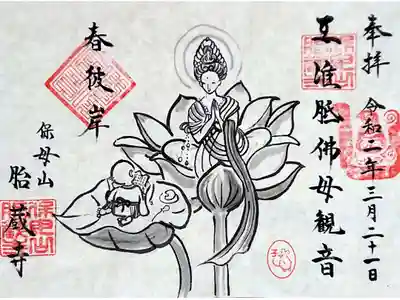 奉拝
令和二年三月二十一日
准胝佛母観音
春彼岸
保母山
胎蔵寺